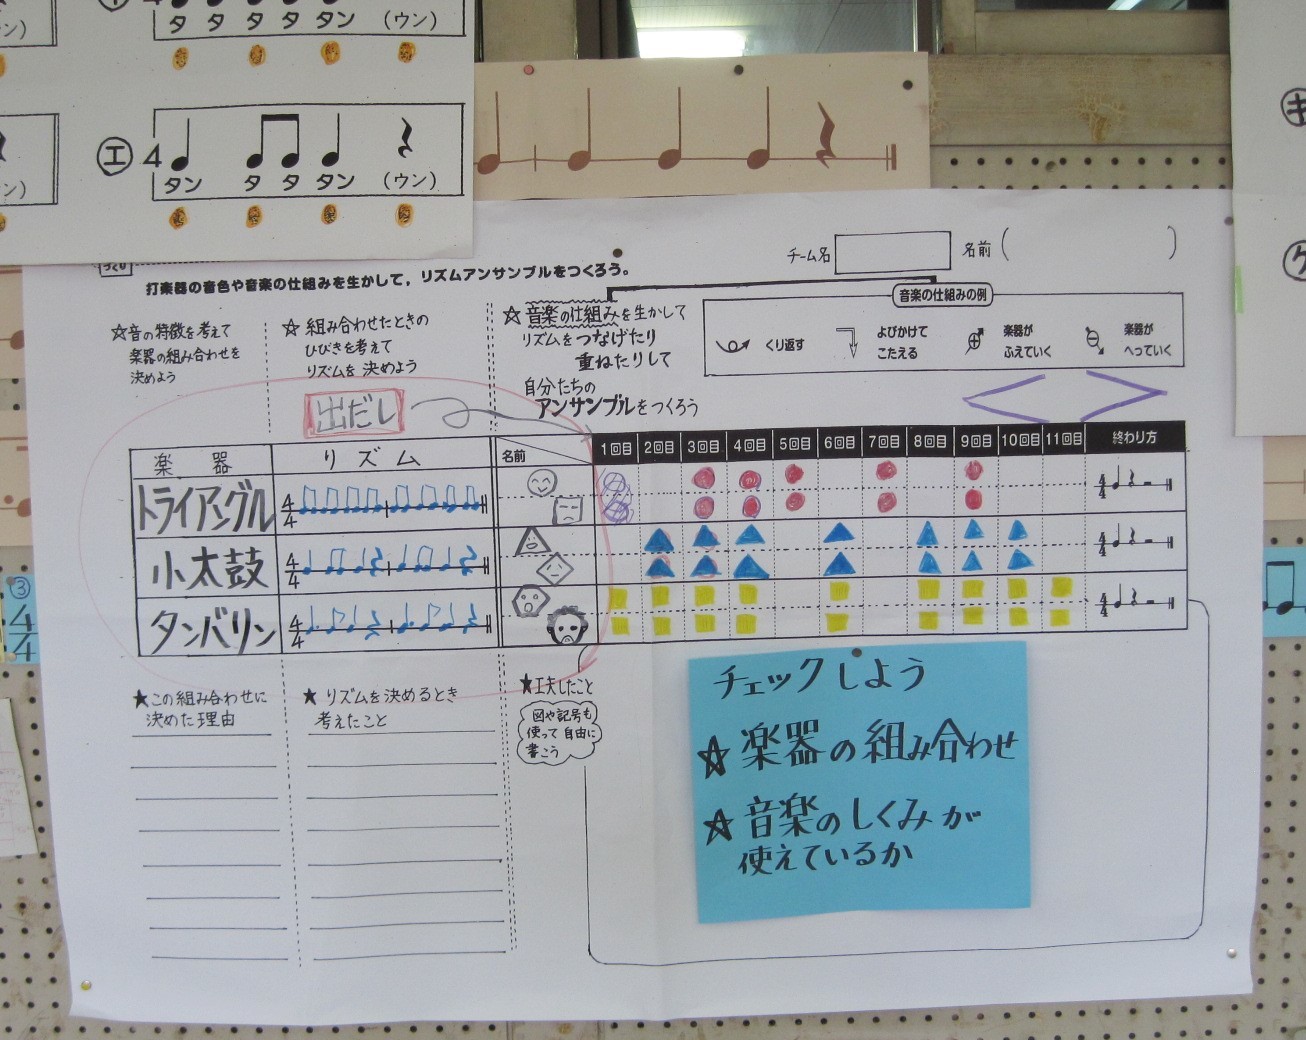 タ タ タ タン (ウン)
エ 4
タン タ タ タン (ウン)
チーム名
名前 ( )
打楽器の音色や音楽の仕組みを生かして,リズムアンサンブルをつくろう。
☆音の特徴を考えて
楽器の組み合わせを
決めよう
☆ 組み合わせたときの
ひびきを考えて
リズムを 決めよう
☆ 音楽の仕組みを生かして
リズムをつなげたり
重ねたりして
自分たちの
アンサンブルをつくろう
音楽の仕組みの例
くり返す
よびかけて
こたえる
楽器が
ふえていく
楽器が
へっていく
出だし
楽器 リズム 名前 1回目 2回目 3回目 4回目 5回目 6回目 7回目 8回目 9回目 10回目 11回目 終わり方
トライアングル 4/4
小太鼓 4/4
タンバリン 4/4
★この組み合わせに
決めた理由
★ リズムを決めるとき
考えたこと
★工夫したこと
図や記号も
使って自由に
書こう
チェックしよう
☆ 楽器の組み合わせ
☆ 音楽のしくみが
使えているか
③
4/4
キ
ケ